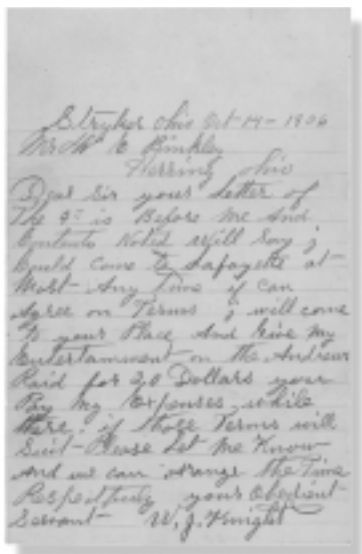 Stryker Ohio Oct 14 - 1906
Mr W E Binkley
Herring Ohio
Dear Sir your Letter of
The 9th is Before me And
Contents Noted will Say I
Could Come to Lafayette at
Most Any Time if can
Agree on Terms I will come
to your Place And Give My
Entertainment on the Andrews
Raid for 20 Dollars you
Pay My Expenses while
there. if those Terms will
Suit - Please Let Me Know
And we can arange the Time
Respectfully your Obedient
Servant - W. J. Knight